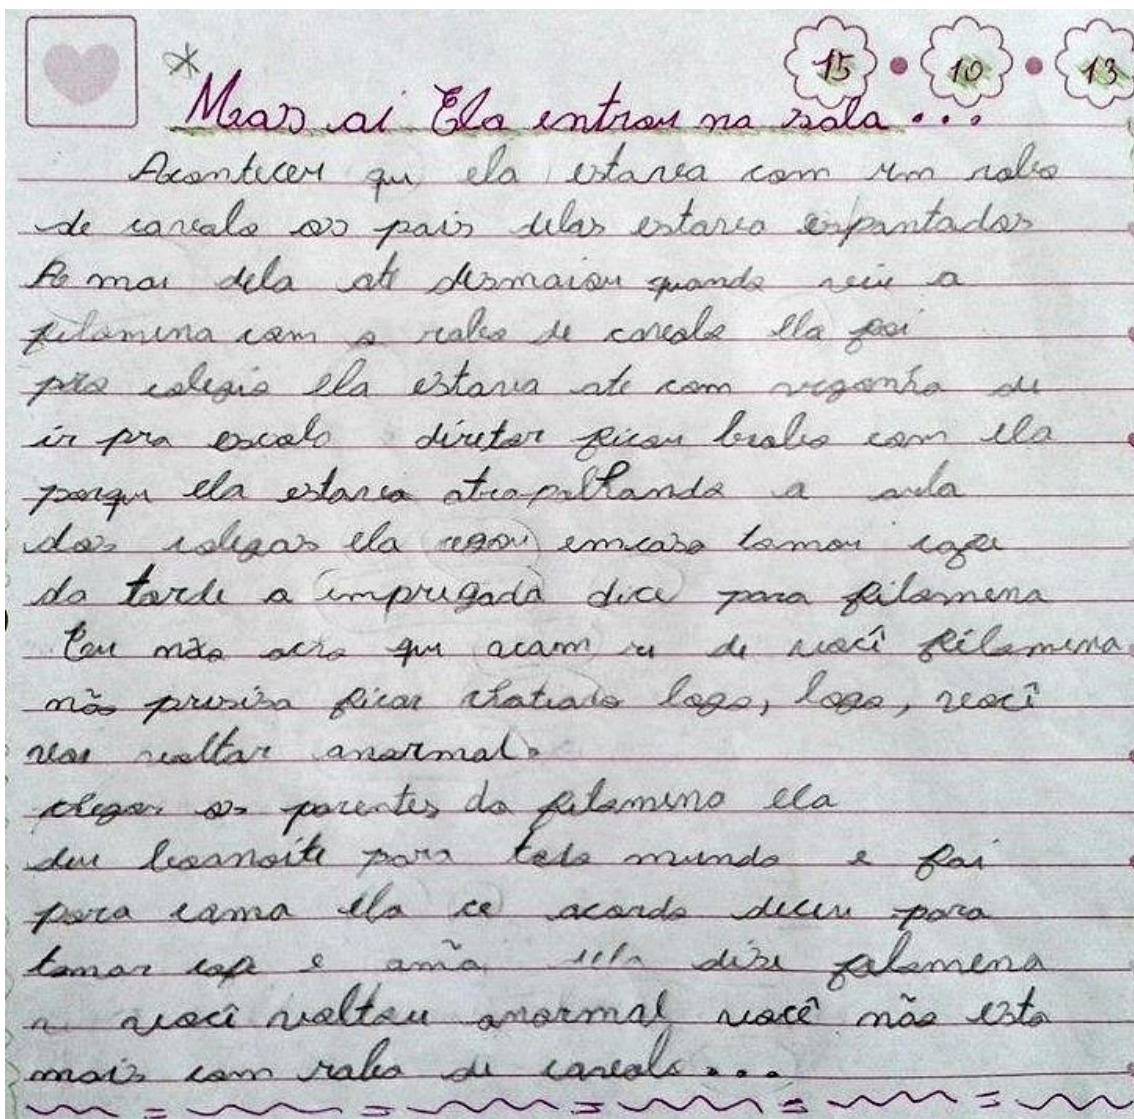 15 • 10 • 13
* Mas ai Ela entrou na sala...
Aconteceu qu ela estava com um rabo
de cavalo os pais delas estava espantados
A mai dela ate desmaiou quando veiu a
filomena com o rabo de cavalo ela foi
pra colegio ela estava ate com vegonha de
ir pra escola diretor ficou brabo com ela
porqu ela estava atrapalhando a aula
dos colegas ela em casa tomou cafe
da tarde a impregada dice para filomena
Eu não acho qu de você filomena
não presisa ficar chatiada logo, logo, você
vai voltar anormal.
chegou os parentes da filomena ela
deu boanoite para todo mundo e foi
para cama ela ce acordo deceu para
tomar cafe e a mã dela dise filomena
você voltou anormal você não esta
mais com rabo de cavalo...